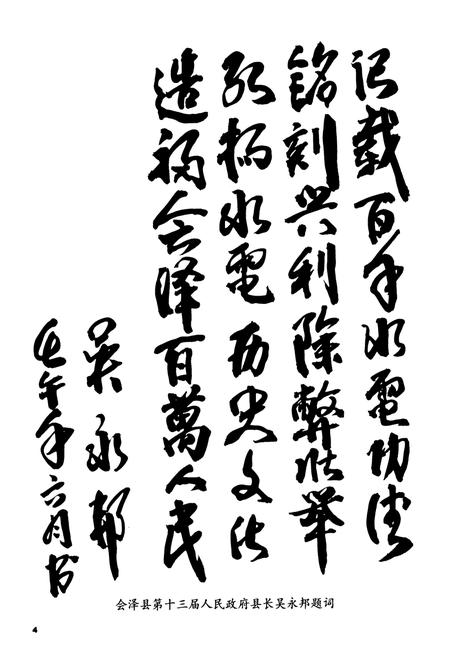 记载百年水電功德
铭刻兴利除弊壮举
弘扬水電历史文化
造福会泽百萬人民
吴永邦
壬午年六月书
会泽县第十三届人民政府县长吴永邦题词
4